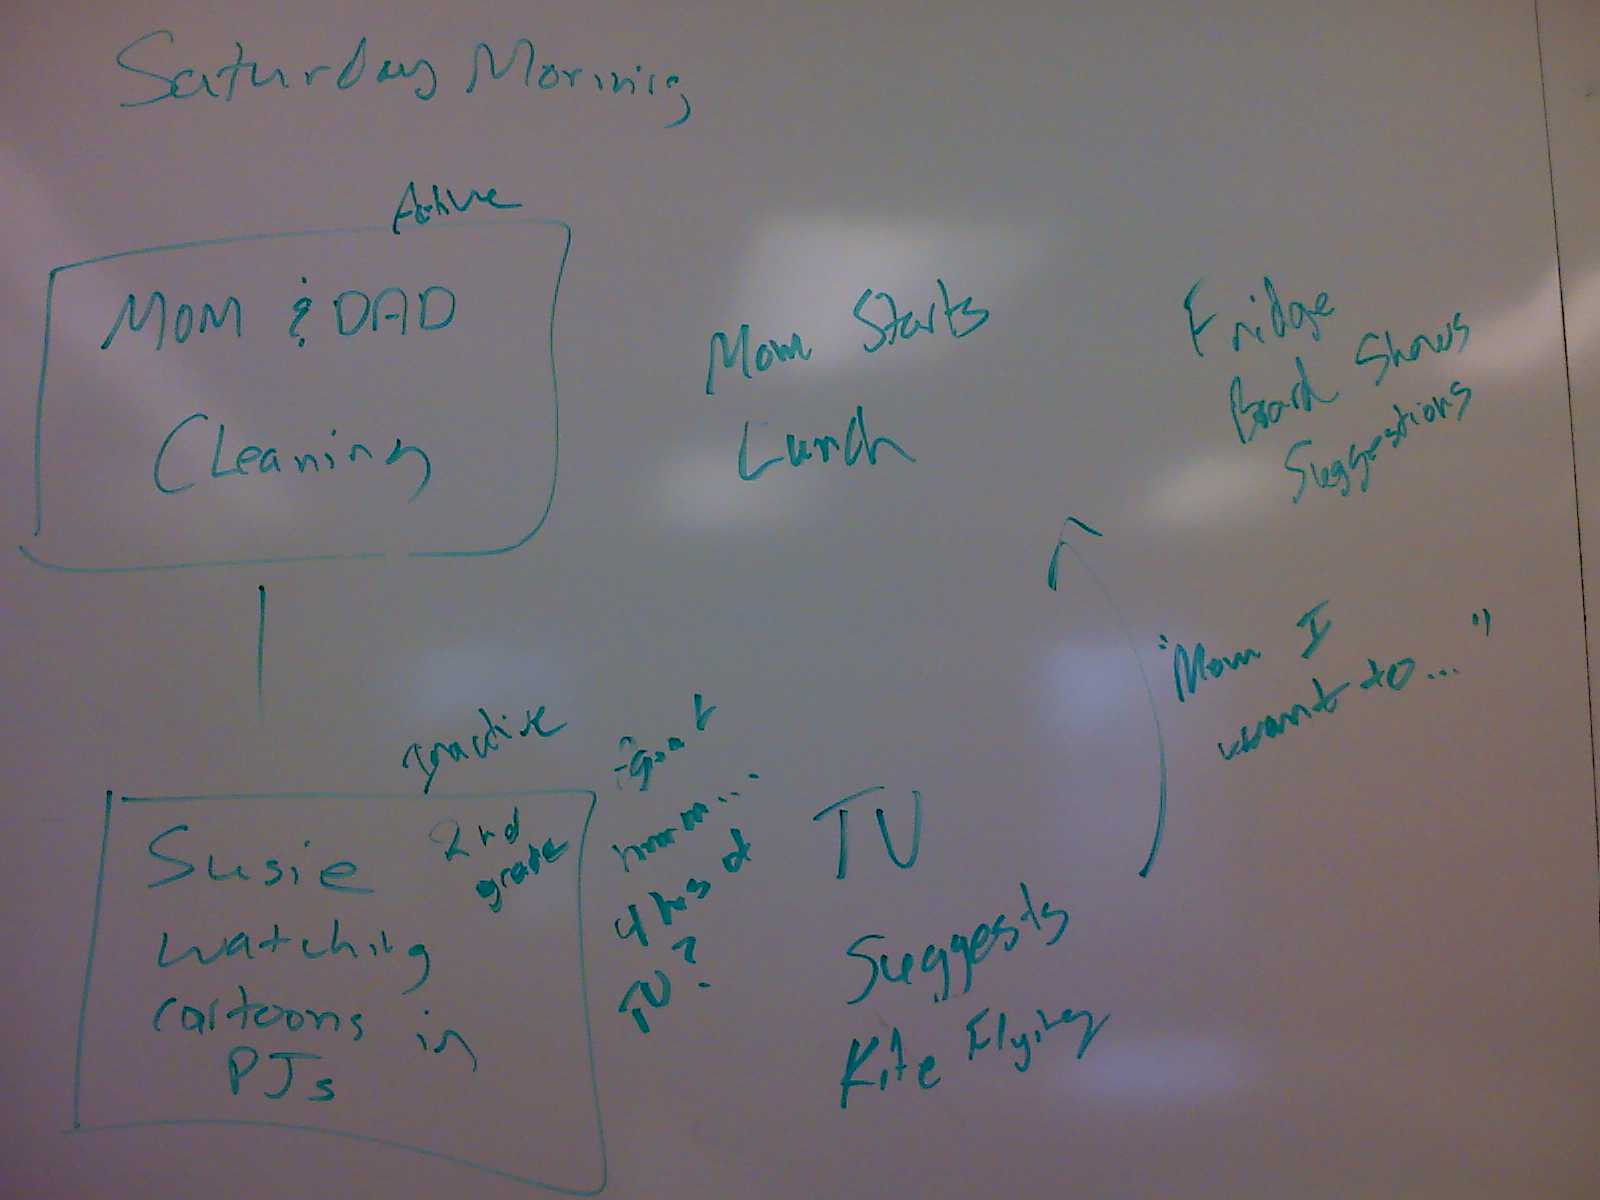 Saturday Morning
Active
MOM & DAD
Cleaning
Mom Starts
Lunch
Fridge
Board Shows
Suggestions
"Mom I
want to... "
Inactive
Susie
2nd
grade
watching
cartoons in
PJs
hmm...
4 hrs of
TV?
TV
Suggests
Kite Flying